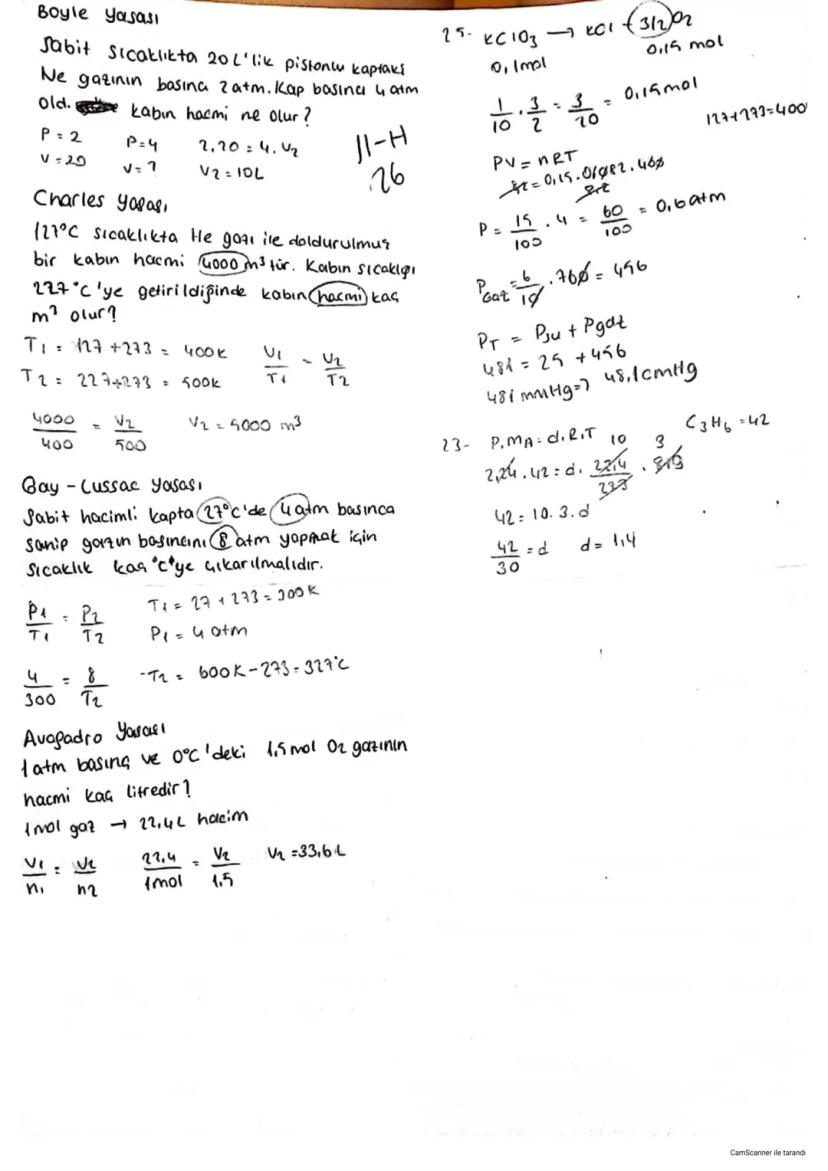 Boyle Yasası
Sabit sıcaklıkta 20L'lik pistonlu kaptaki
Ne gazının basıncı 2atm. Kap basıncı 4 atm
old. kabın hacmi ne olur?
P = 2 P=4 2.20 = 4.V2
V = 20 V=? V2 = 10L
11-H
26
Charles Yasası
127°C sıcaklıkta He gazı ile doldurulmuş
bir kabın hacmi 4000 m³tür. Kabın sıcaklığı
227°C'ye getirildiğinde kabın hacmi kaç
m³ olur?
T1 = 127 +273 = 400K V1/T1 = V2/T2
T2 = 227+273 = 500K
4000/400 = V2/500 V2 = 5000 m³
Gay - Lussac Yasası
Sabit hacimli kapta 27°C'de 4 atm basınca
sahip gazın basıncını 8 atm yapmak için
sıcaklık kaç °C'ye çıkarılmalıdır.
P1/T1 = P2/T2 T1 = 27 + 273 = 300K
P1 = 4 atm
4/300 = 8/T2 -T2 = 600K-273 = 327°C
Avogadro Yasası
1atm basınç ve 0°C'deki 1,5 mol O2 gazının
hacmi kaç litredir?
1mol gaz → 22,4L hacim
V1/n1 = V2/n2 22,4/1mol = V2/1.5 V2 =33,6L
25- KClO3 → KCl + 3/2 O2
0,1mol 0,15 mol
1/10 . 3/2 = 3/20 = 0,15mol
127+273=400
PV = nRT
= 0,15.0,082.400
P = 15/100 . 4 = 60/100 = 0,6atm
Pgaz = 6/10 . 760 = 456
PT = Psu + Pgaz
481 = 25 + 456
481 mmHg => 48,1cmHg
23- P.MA = d.R.T 10 3 C3H6 = 42
2,24.42 = d. 22,4/273 . 819
42 = 10. 3. d
42/30 = d d = 1,4
CamScanner ile tarandı